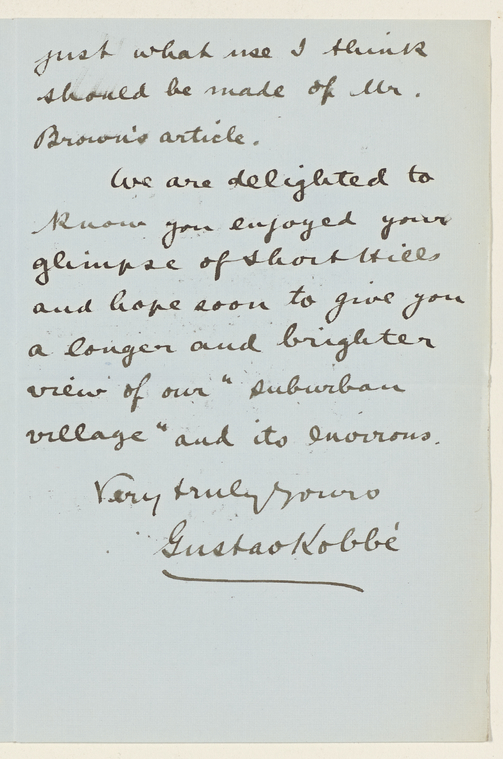 just what use I think
should be made of Mr.
Brown's article.
We are delighted to
know you enjoyed your
glimpse of Short Hills
and hope soon to give you
a longer and brighter
view of our "suburban
village" and its environs.
Very truly yours
Gustav Kobbé